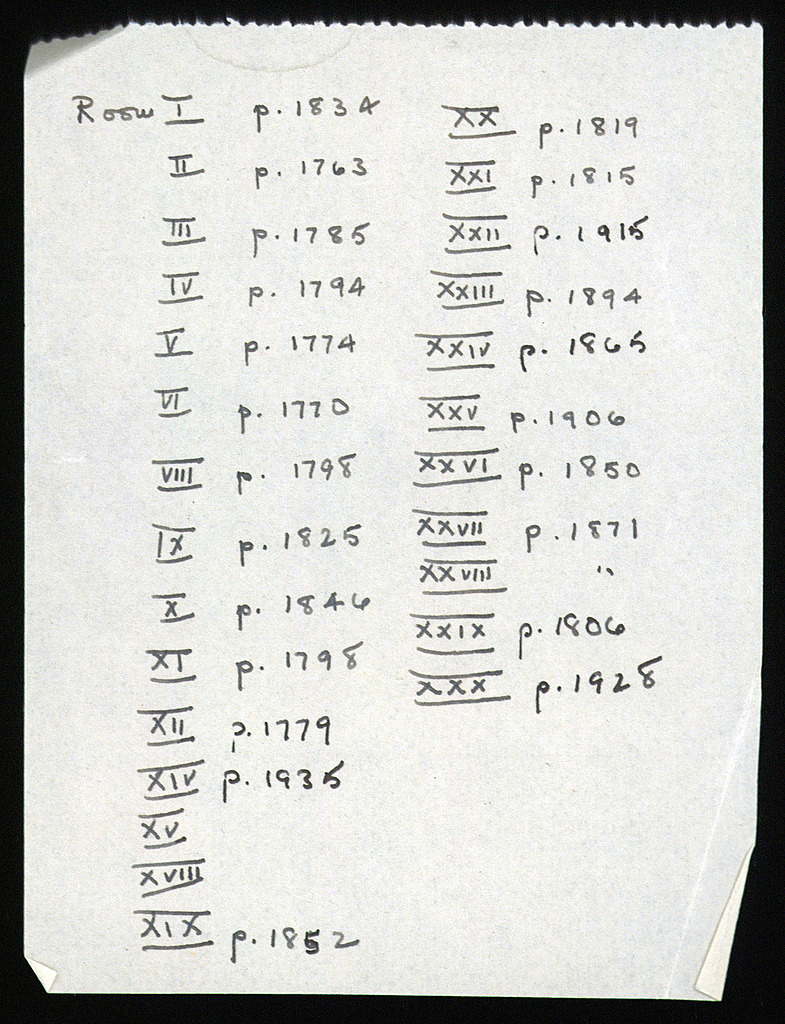 Room I p. 1834
II p. 1763
III p. 1785
IV p. 1794
V p. 1774
VI p. 1770
VIII p. 1798
IX p. 1825
X p. 1846
XI p. 1798
XII p. 1779
XIV p. 1935
XV
XVIII
XIX p. 1852
XX p. 1819
XXI p. 1815
XXII p. 1915
XXIII p. 1894
XXIV p. 1865
XXV p. 1906
XXVI p. 1850
XXVII p. 1871
XXVIII "
XXIX p. 1806
XXX p. 1928